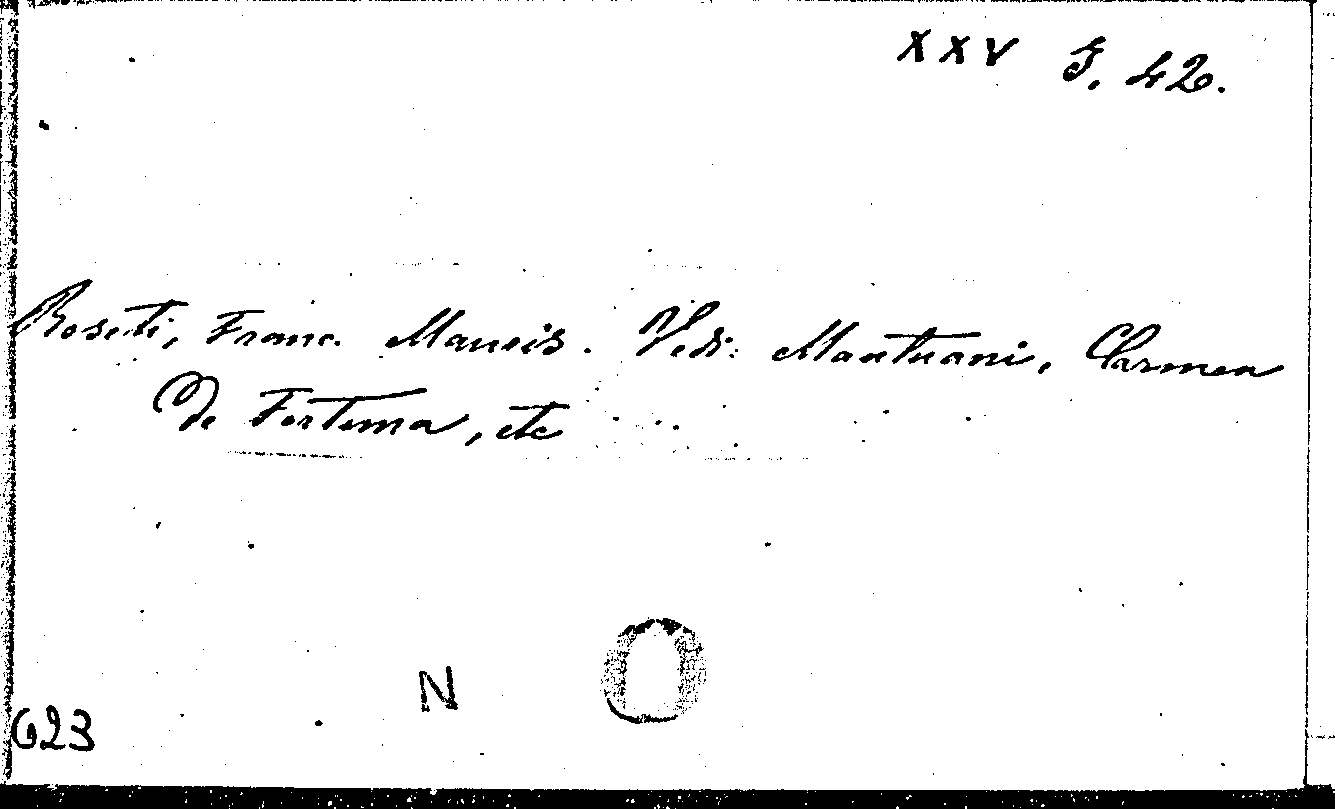 XXV G. 42.
Roseti, Franc. Mauris. Vedi: Mantuani, Carmen
de Fortuna, etc
N O
623